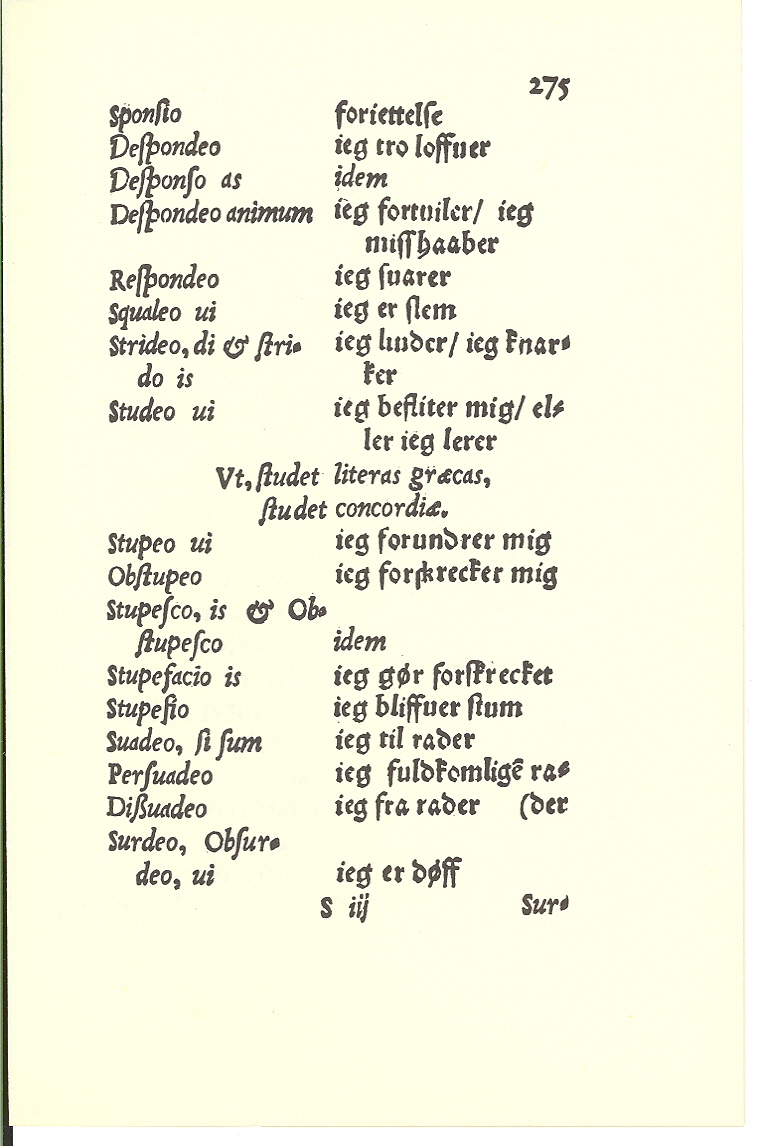 275
Sponſio foriettelſe
Deſpondeo ieg tro loffuer
Deſponſo as idem
Deſpondeo animum ieg fortuiler/ ieg
miſſhaaber
Reſpondeo ieg ſuarer
Squaleo ui ieg er ſlem
Strideo, di & ſtri-
do is ieg luider/ ieg knar-
ker
Studeo ui ieg befliter mig/ el-
ler ieg lerer
Vt, ſtudet literas græcas,
ſtudet concordiæ.
Stupeo ui ieg forundrer mig
Obſtupeo ieg forſkrecker mig
Stupeſco, is & Ob-
ſtupeſco idem
Stupefacio is ieg gør forſkrecket
Stupefio ieg bliffuer ſtum
Suadeo, ſi ſum ieg til rader
Perſuadeo ieg fuldkomligē ra-
Dißuadeo ieg fra rader (der
Surdeo, Obſur-
deo, ui ieg er døff
S iij Sur-